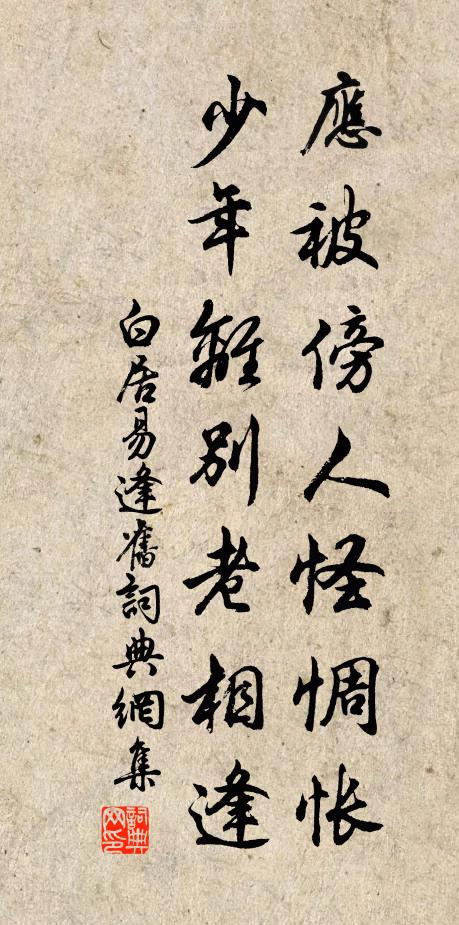 應被傍人怪惆悵
少年離別老相逢
白居易逢舊詞典網集
詞典网印